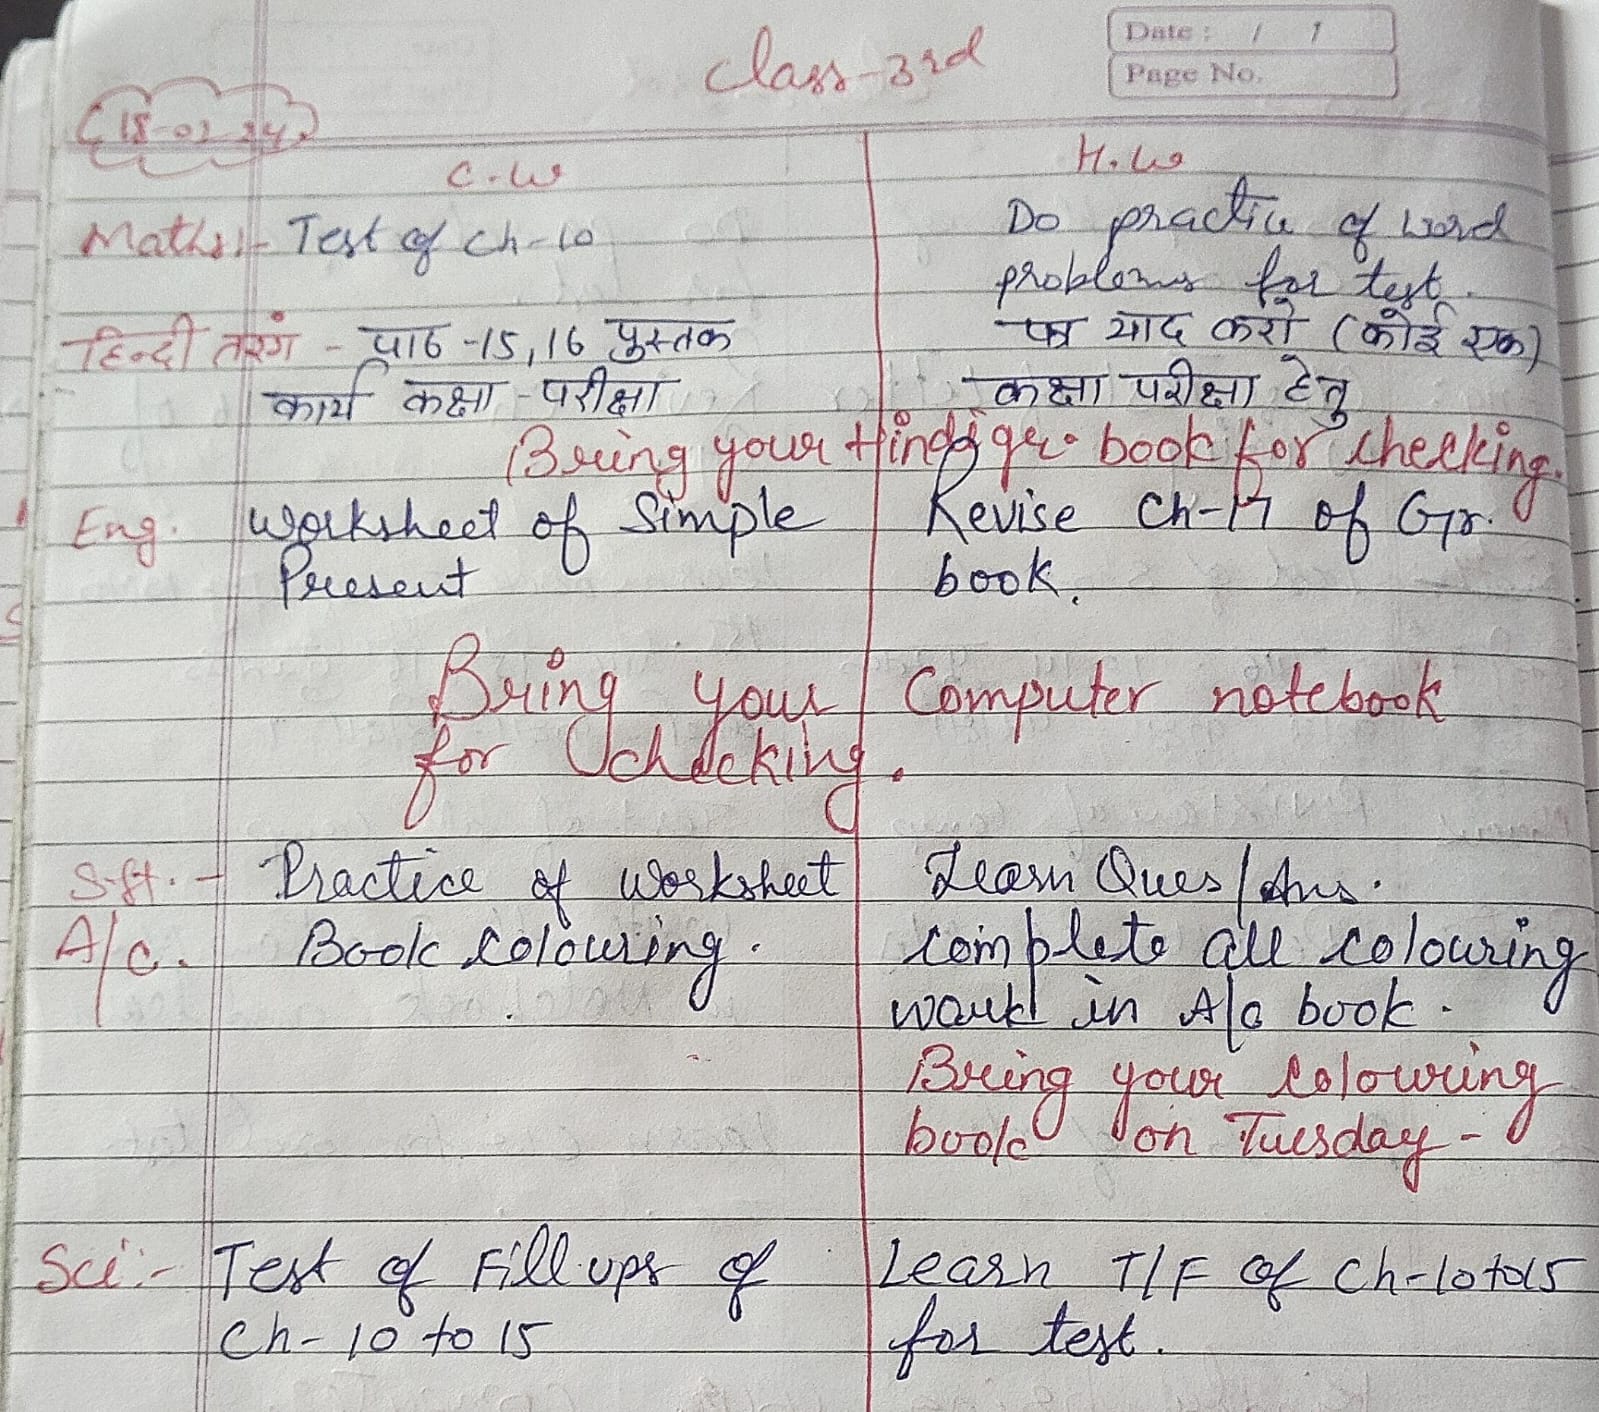 Class-3rd
Date : / 1
Page No.
18-02-24
C.W
H.W
Maths:- Test of Ch-10
Do practice of word
problems for test.
हिन्दी तरंग - पाठ -15,16 पुस्तक
कार्य कक्षा - परीक्षा
पत्र याद करो (कोई एक)
कक्षा परीक्षा हेतु
Bring your Hindi gr. book for checking.
Eng. Worksheet of Simple
Present
Revise Ch-17 of Gr.
book.
Bring your Computer notebook
for checking.
S.St. - Practice of worksheet
Learn Ques/Ans.
A/C. Book colouring.
complete all colouring
work in A/C book.
Bring your colouring
book on Tuesday-
Sci:- Test of Fill ups of
Ch- 10 to 15
Learn T/F of Ch-10 to 15
for test.